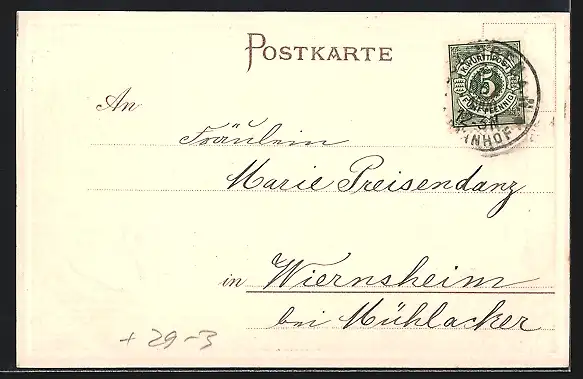 POSTKARTE
K. WÜRTTEMBG.
5
FÜNF PFENNIG
An
Fräulein
Marie Preisendanz
in Wiernsheim
bei Mühlacker
+ 29-3